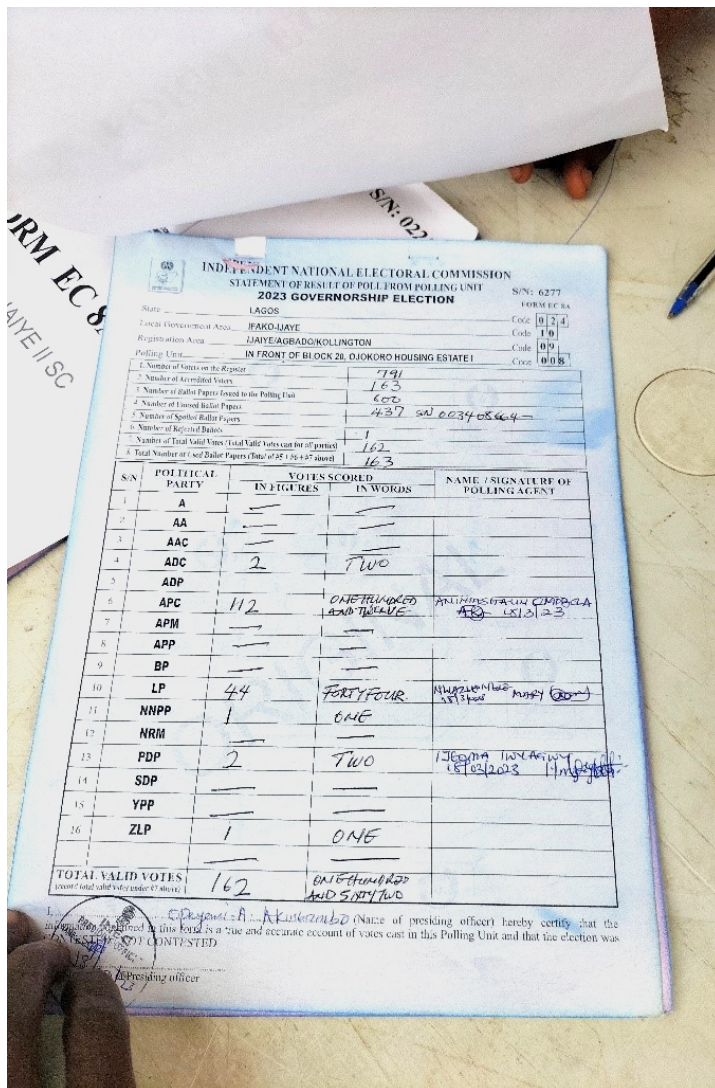 S/N: 022
ORM EC 8A
JAIYE II SC
INDEPENDENT NATIONAL ELECTORAL COMMISSION
STATEMENT OF RESULT OF POLL FROM POLLING UNIT
2023 GOVERNORSHIP ELECTION
S/N: 6277
FORM EC 8A
State LAGOS Code 0 2 4
Local Government Area IFAKO-IJAYE Code 1 0
Registration Area IJAIYE/AGBADO/KOLLINGTON Code 0 9
Polling Unit IN FRONT OF BLOCK 20, OJOKORO HOUSING ESTATE I Code 0 0 8
1. Number of Voters on the Register 791
2. Number of Accredited Voters 163
3. Number of Ballot Papers Issued to the Polling Unit 600
4. Number of Unused Ballot Papers 437 SN 003408664-
5. Number of Spoiled Ballot Papers
6. Number of Rejected Ballots 1
7. Number of Total Valid Votes (Total Valid Votes cast for all parties) 162
8. Total Number of Used Ballot Papers (Total of #5+#6+#7 above) 163
S/N POLITICAL PARTY VOTES SCORED NAME / SIGNATURE OF POLLING AGENT
IN FIGURES IN WORDS
1 A — —
2 AA — —
3 AAC — —
4 ADC 2 TWO
5 ADP
6 APC 112 ONE HUNDRED AND TWELVE 18/3/23
7 APM — —
8 APP — —
9 BP — —
10 LP 44 FORTY FOUR MARY
11 NNPP 1 ONE
12 NRM — —
13 PDP 2 TWO IJEOMA 18/03/2023
14 SDP — —
15 YPP — —
16 ZLP 1 ONE
— —
TOTAL VALID VOTES 162 ONE HUNDRED AND SIXTY TWO
(record total valid votes under #7 above)
I, A. (Name of presiding officer) hereby certify that the
information contained in this form is a true and accurate account of votes cast in this Polling Unit and that the election was
CONTESTED/NOT CONTESTED
Presiding officer